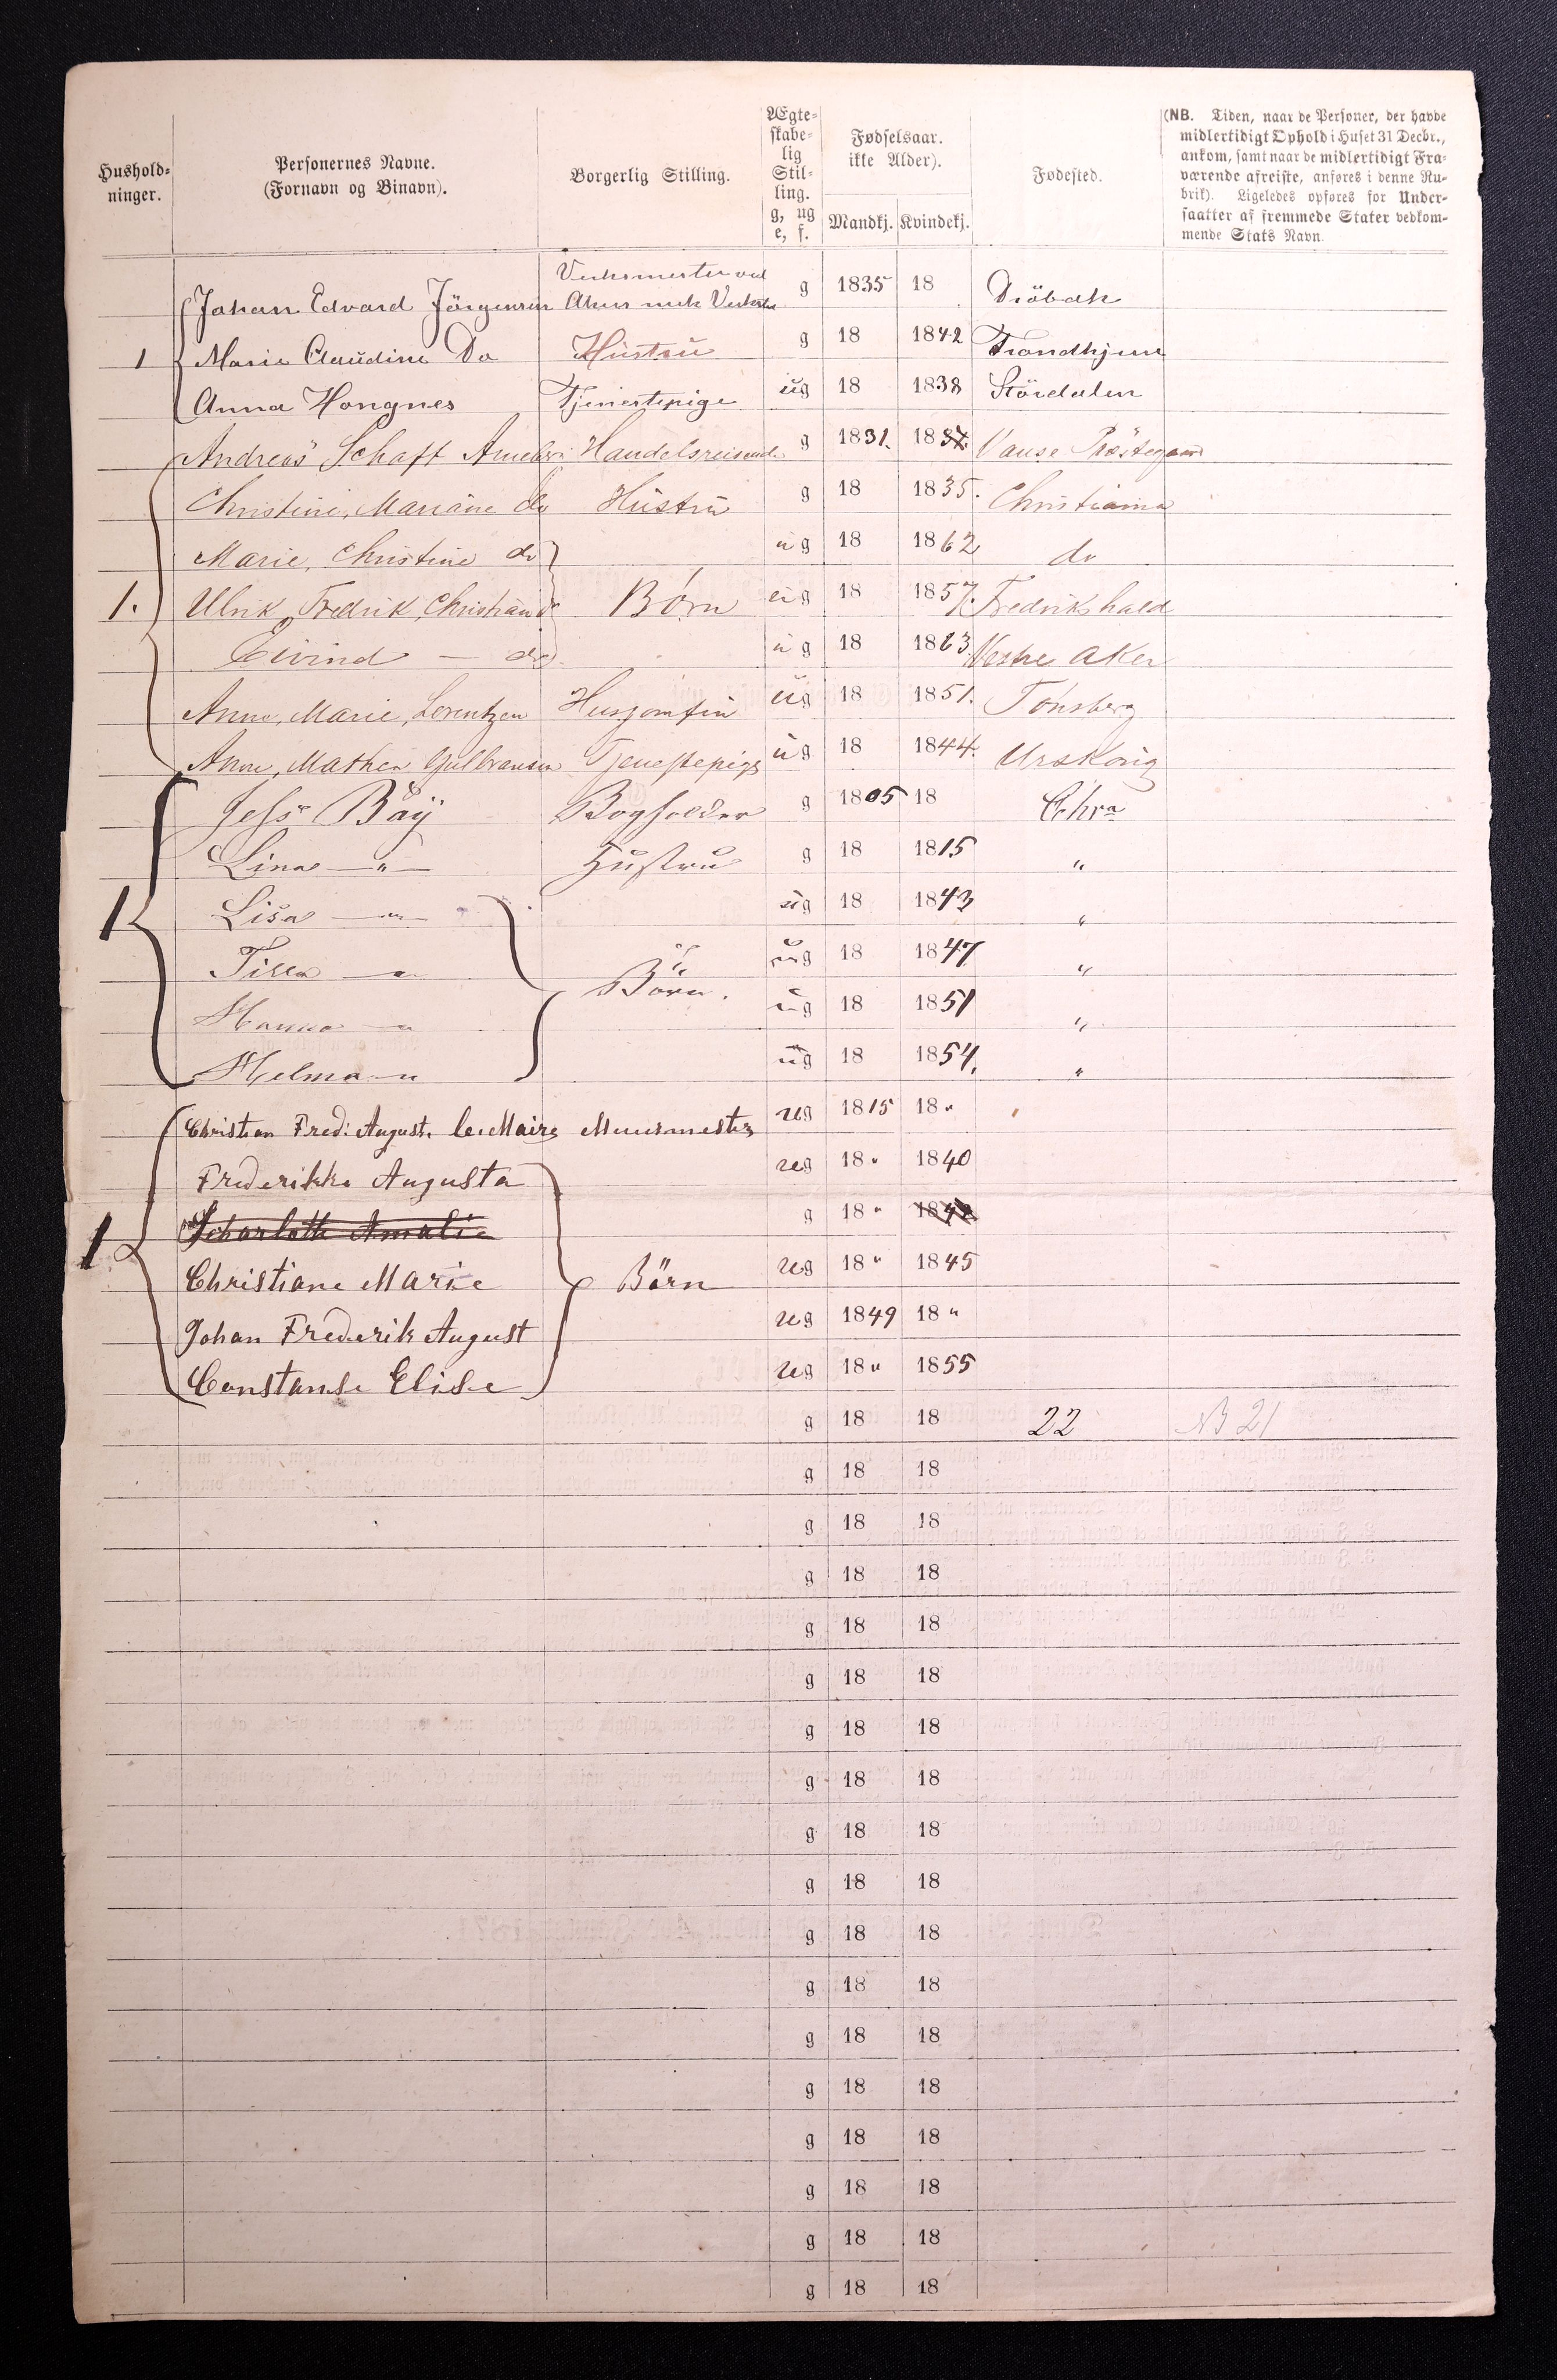 Hushold-
ninger.
Personernes Navne.
(Fornavn og Binavn).
Borgerlig Stilling.
Ægte-
skabe-
lig
Stil-
ling.
g, ug
e, f.
Fødselsaar.
ikke Alder).
Mandkj. Kvindekj.
Fødested.
(NB. Tiden, naar de Personer, der havde
midlertidigt Ophold i Huset 31 Decbr.,
ankom, samt naar de midlertidigt Fra-
værende afreiste, anføres i denne Ru-
brik). Ligeledes opføres for Under-
saatter af fremmede Stater vedkom-
mende Stats Navn.
Verksmester ved
Johan Edvard Jörgensen Akers mek Verksted g 1835 18 Dröbak
1 Marie Claudine Do Hustru g 18 1842 Trondhjem
Anna Hongnes Tjenestepige ug 18 1838 Stördalen
Andreas Schaft Handelsreisende g 1831. 1837. Vanse Præstegaard
Christine, Mariane do Hustru g 18 1835. Christiania
Marie, Christine do ug 18 1862 do
1. Ulrik, Fredrik, Christian do Børn ug 18 1857. Fredrikshald
Eivind — do ug 18 1863 Vestre Aker
Anne, Marie, Lorentzen Husjomfru ug 18 1851. Tønsberg
Anne, Mathea Gulbransen Tjenestepige ug 18 1844. Urskoug
Jess Bäÿ Bogholder g 1805 18 Chra
Lina —"— Hustru g 18 1815 "
1 Lisa —"— ug 18 1843 "
—"— ug 18 1847 "
Börn.
Hanna —" ug 18 1851 "
Helma —" ug 18 1854. "
Christian Fred: August. le Maire Muurmester ug 1815 18"
Frederikke Augusta ug 18" 1840
Scharlotte Amalie g 18" 1842
1 Christiane Marie Börn ug 18" 1845
Johan Frederik August ug 1849 18"
Constanse Elise ug 18" 1855
g 18 18 22 NB 21
g 18 18
g 18 18
g 18 18
g 18 18
g 18 18
g 18 18
g 18 18
g 18 18
g 18 18
g 18 18
g 18 18
g 18 18
g 18 18
g 18 18
g 18 18
g 18 18
g 18 18